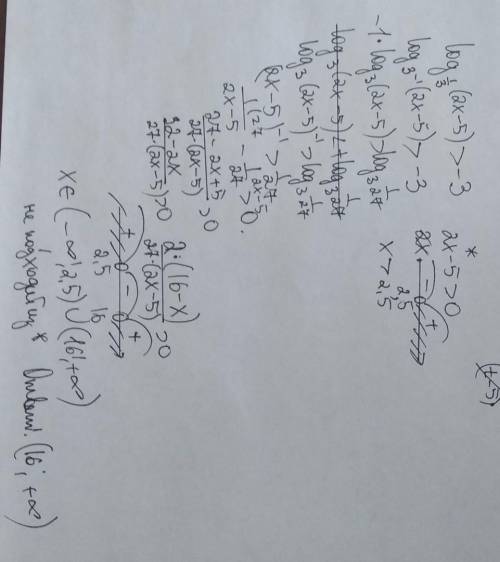 log_{1/3}(2x-5)>-3
log_{3^{-1}}(2x-5)>-3
-1·log_3(2x-5)>log_3 1/27
log_3(2x-5)<+log_3 1/27
log_3(2x-5)^{-1}>log_3 1/27
(2x-5)^{-1}>1/27
1/(2x-5) - 1/27 >0.
(27-2x+5)/(27·(2x-5))>0
(32-2x)/(27·(2x-5))>0
2·(16-x)/(27·(2x-5))>0
+ - +
2,5 16
x∈(-∞;2,5)∪(16;+∞)
не подходит *
Ответ. (16; +∞)
*
2x-5>0
2x
- +
2,5
x>2,5